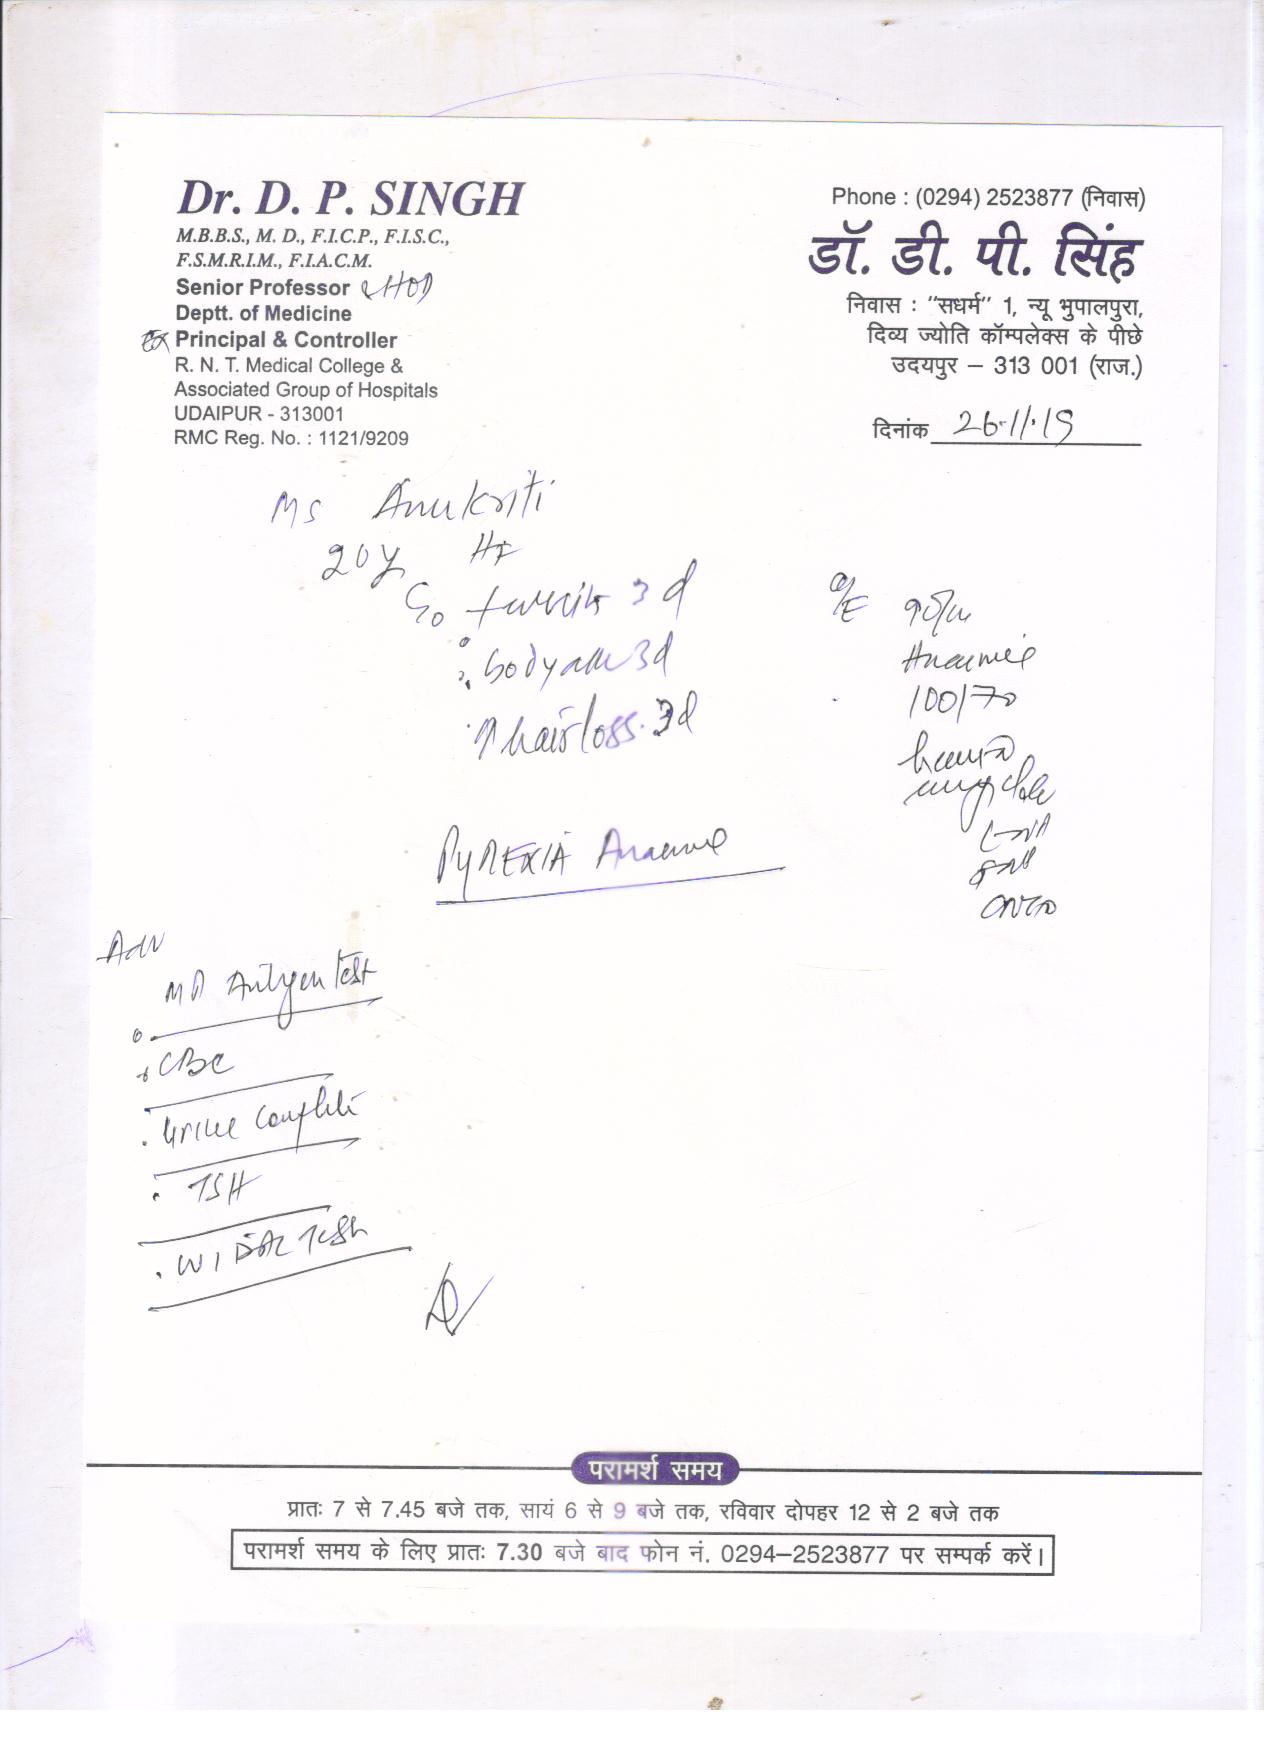 Dr. D. P. SINGH
M.B.B.S., M. D., F.I.C.P., F.I.S.C.,
F.S.M.R.I.M., F.I.A.C.M.
Senior Professor & HOD
Deptt. of Medicine
Ex Principal & Controller
R. N. T. Medical College &
Associated Group of Hospitals
UDAIPUR - 313001
RMC Reg. No. : 1121/9209
Phone : (0294) 2523877 (निवास)
डॉ. डी. पी. सिंह
निवास : “सधर्म” 1, न्यू भुपालपुरा,
दिव्य ज्योति कॉम्पलेक्स के पीछे
उदयपुर – 313 001 (राज.)
दिनांक 26.11.19
Ms Anukriti
20y
3d
bodyache 3d
↑ hairloss. 3d
O/E
Anaemic
100/70
PYREXIA Anaemia
Adv
MP Antigen Test
CBC
Urine Complete
TSH
WIDAL Test
परामर्श समय
प्रातः 7 से 7.45 बजे तक, सायं 6 से 9 बजे तक, रविवार दोपहर 12 से 2 बजे तक
परामर्श समय के लिए प्रातः 7.30 बजे बाद फोन नं. 0294–2523877 पर सम्पर्क करें।